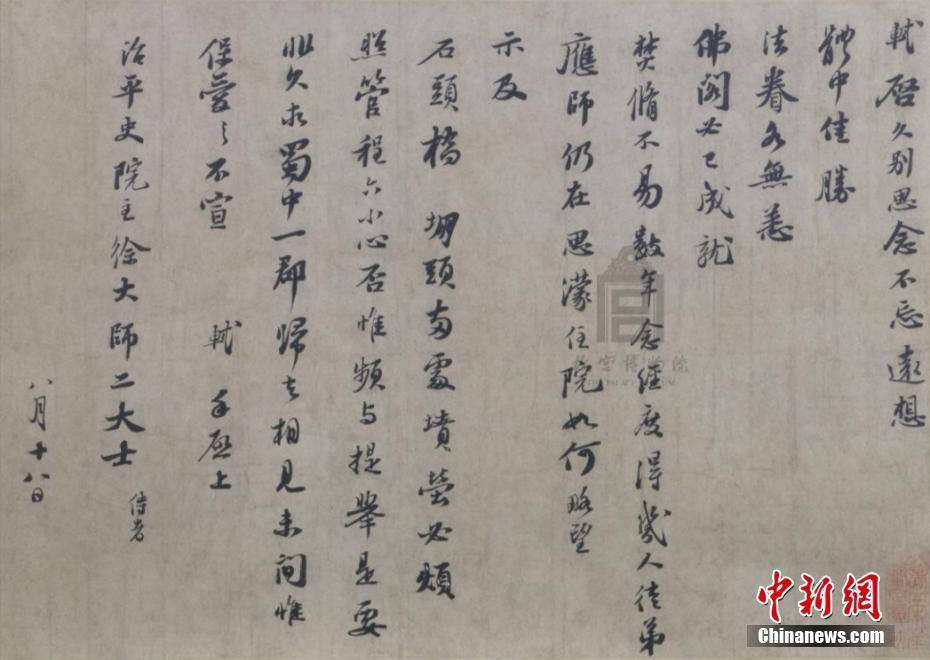 軾啓久別思念不忘遠想
體中佳勝
法眷各無恙
佛閣必已成就
焚脩不易數年念經度得幾人徒弟
應師仍在思濛住院如何略望
示及
石頭橋堋頭兩處墳塋必煩
照管程六小心否惟頻与提舉是要
非久求蜀中一郡歸去相見未間惟
保愛之不宣軾手啓上
治平史院主徐大師二大士侍者
八月十八日
故宮博物院
THE PALACE MUSEUM
中新網
Chinanews.com